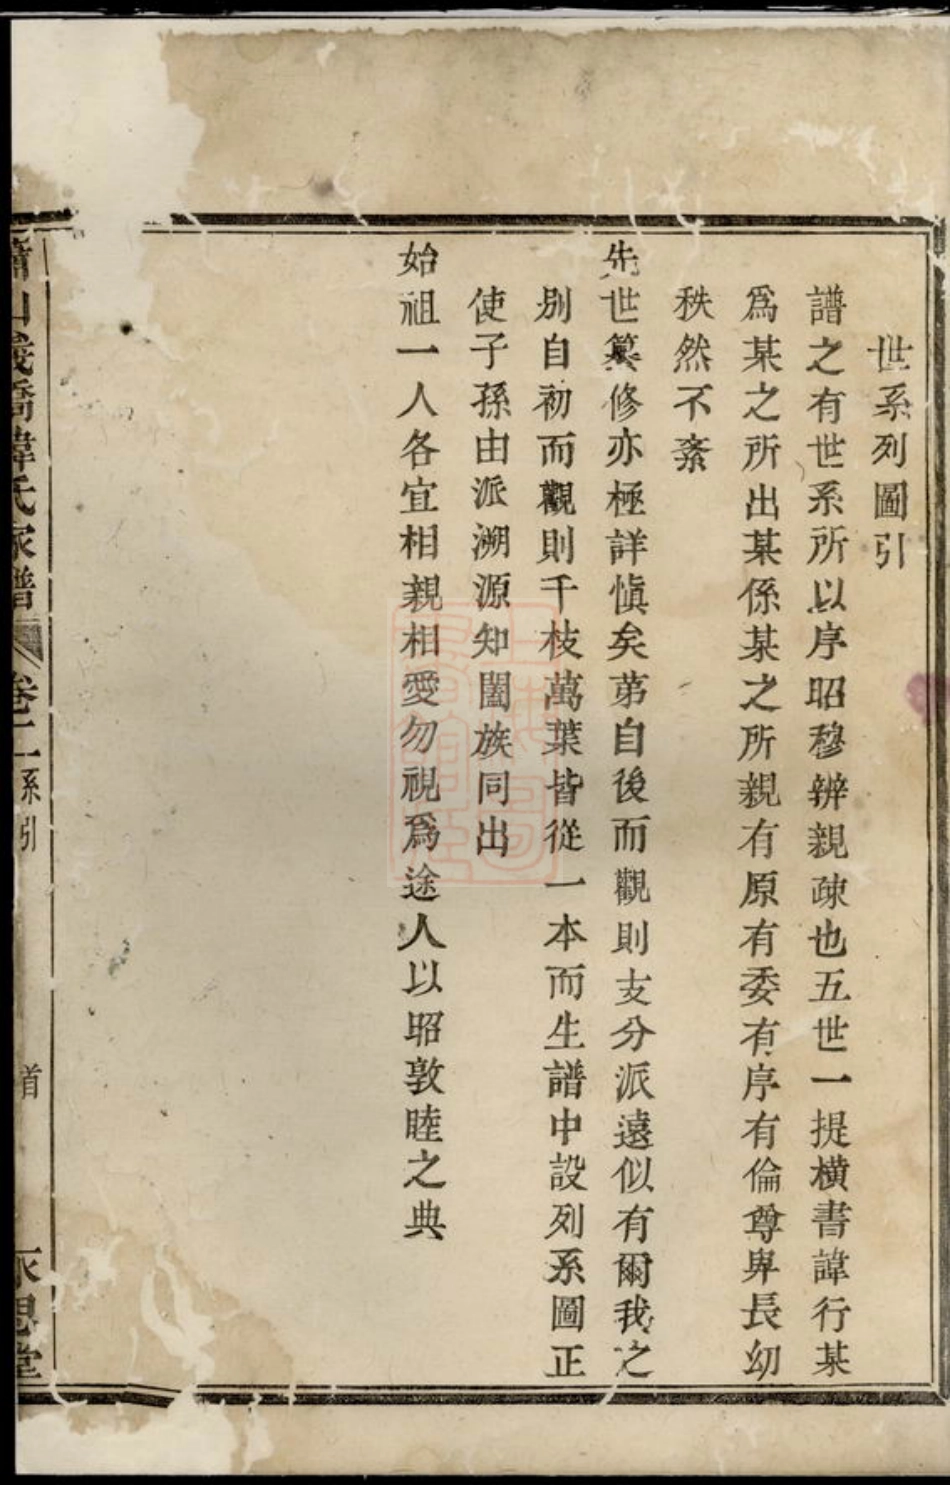 世系列圖引
譜之有世系所以序昭穆辨親疎也五世一提橫書諱行某
爲某之所出某係某之所親有原有委有序有倫尊卑長幼
秩然不紊
先世纂修亦極詳愼矣苐自後而觀則支分派遠似有爾我之
别自初而觀則千枝萬葉皆從一本而生譜中設列系圖正
使子孫由派溯源知闔族同出
始祖一人各宜相親相愛勿視爲途人以昭敦睦之典
山義橋韓氏家譜
卷二
系引
首
思堂